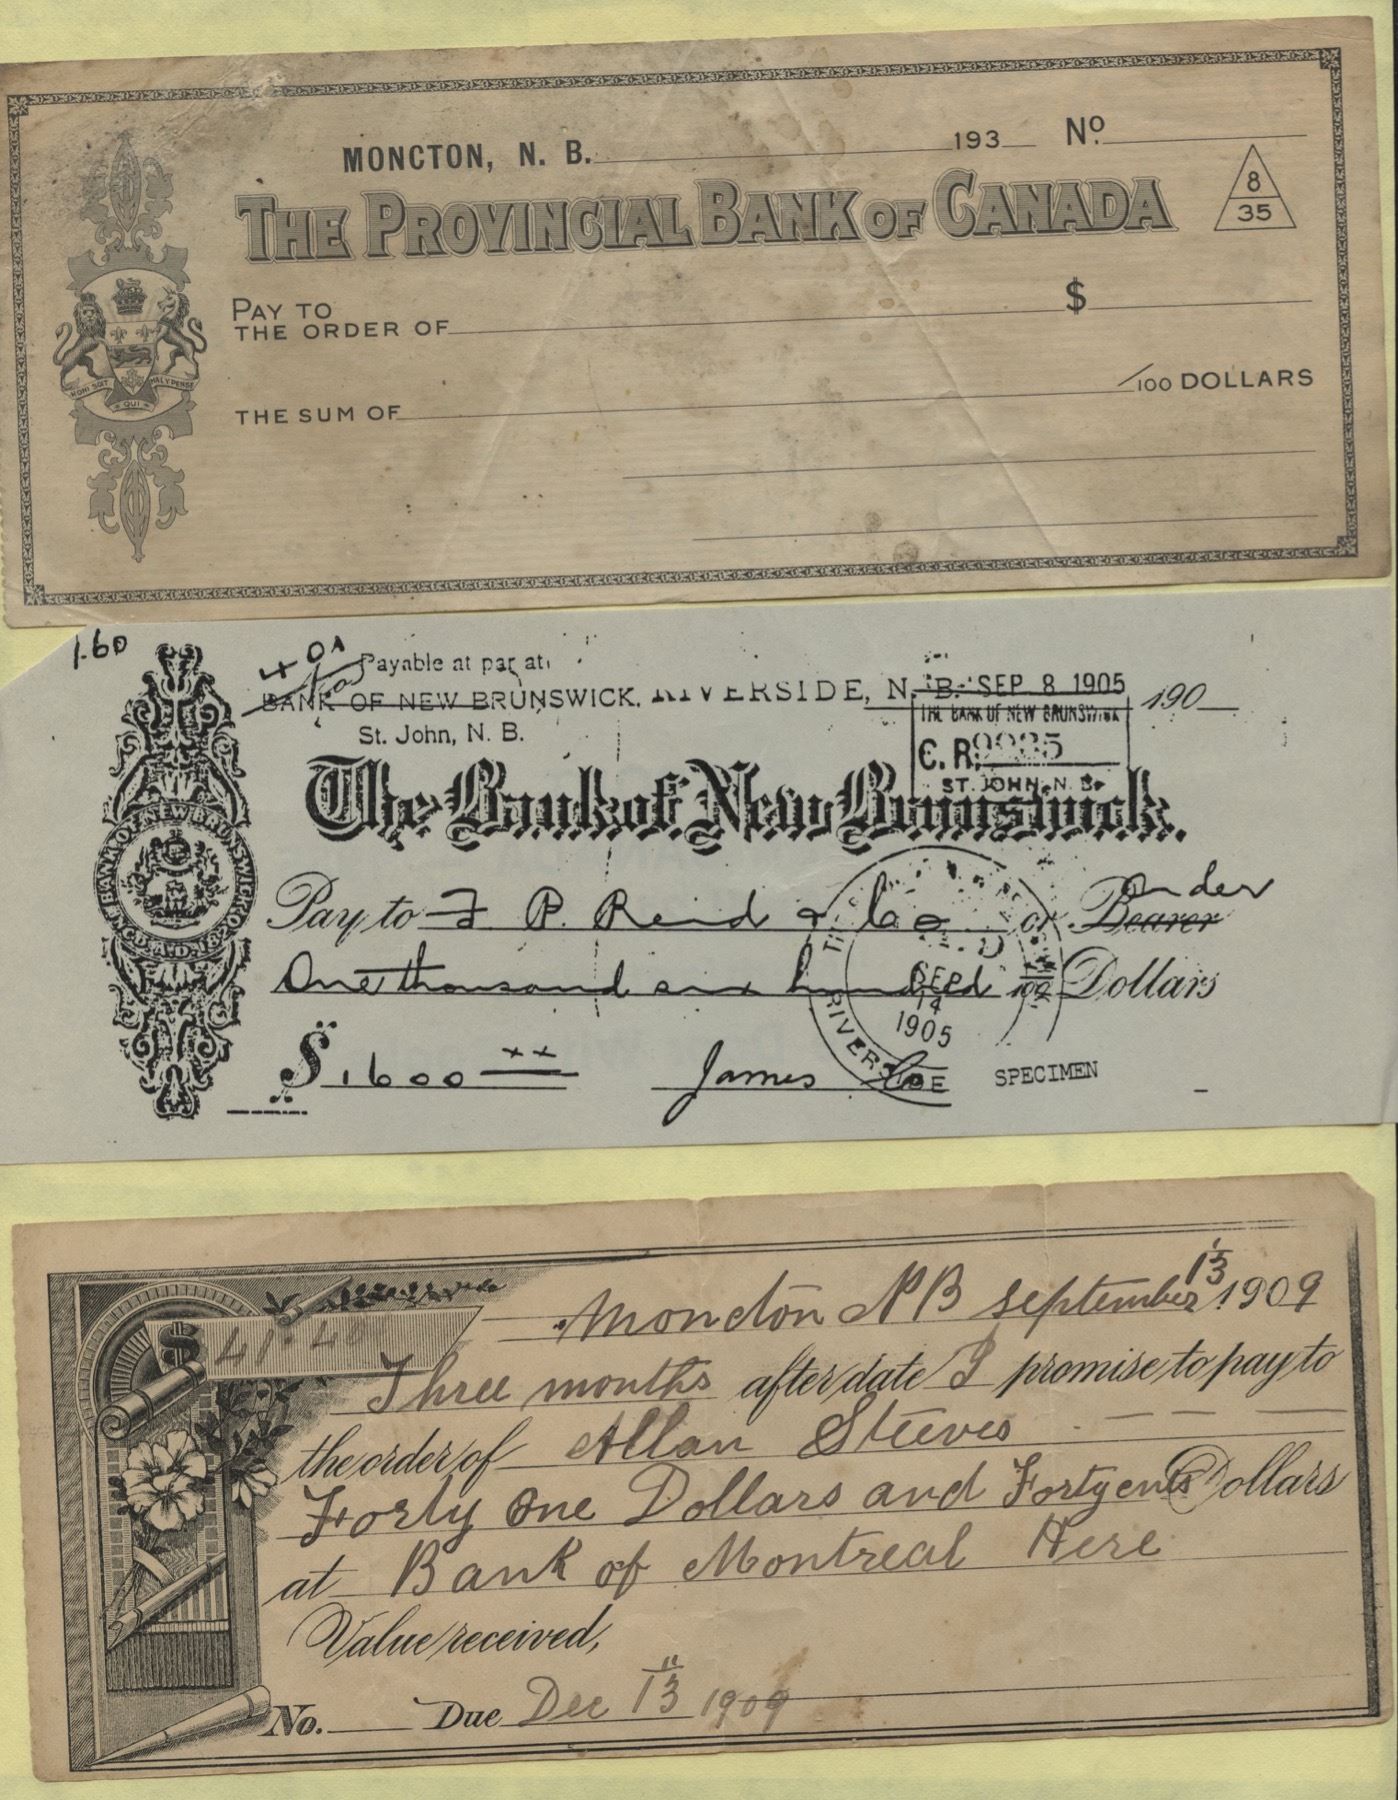 MONCTON, N. B. 193 Nº
THE PROVINCIAL BANK OF CANADA
8
35
PAY TO
THE ORDER OF $
THE SUM OF /100 DOLLARS
HONI SOIT QUI MAL Y PENSE
1.60
Payable at par at
BANK OF NEW BRUNSWICK, RIVERSIDE, N. B. SEP 8 1905 190
St. John, N. B.
THE BANK OF NEW BRUNSWICK
C. R.
ST. JOHN, N. B.
The Bank of New Brunswick.
BANK OF NEW BRUNSWICK
INCD. A.D. 1820
Pay to F. P. Reid & Co or Bearer Order
One thousand six hundred xx/100 Dollars
SEP
14
1905
RIVERSIDE
$ 1600 xx James SPECIMEN
Moncton NB September 13 1909
$ 41.40
Three months after date I promise to pay to
the order of Allan Steeves
Forty One Dollars and Forty cents Dollars
at Bank of Montreal Here
Value received,
No. Due Dec 13 1909